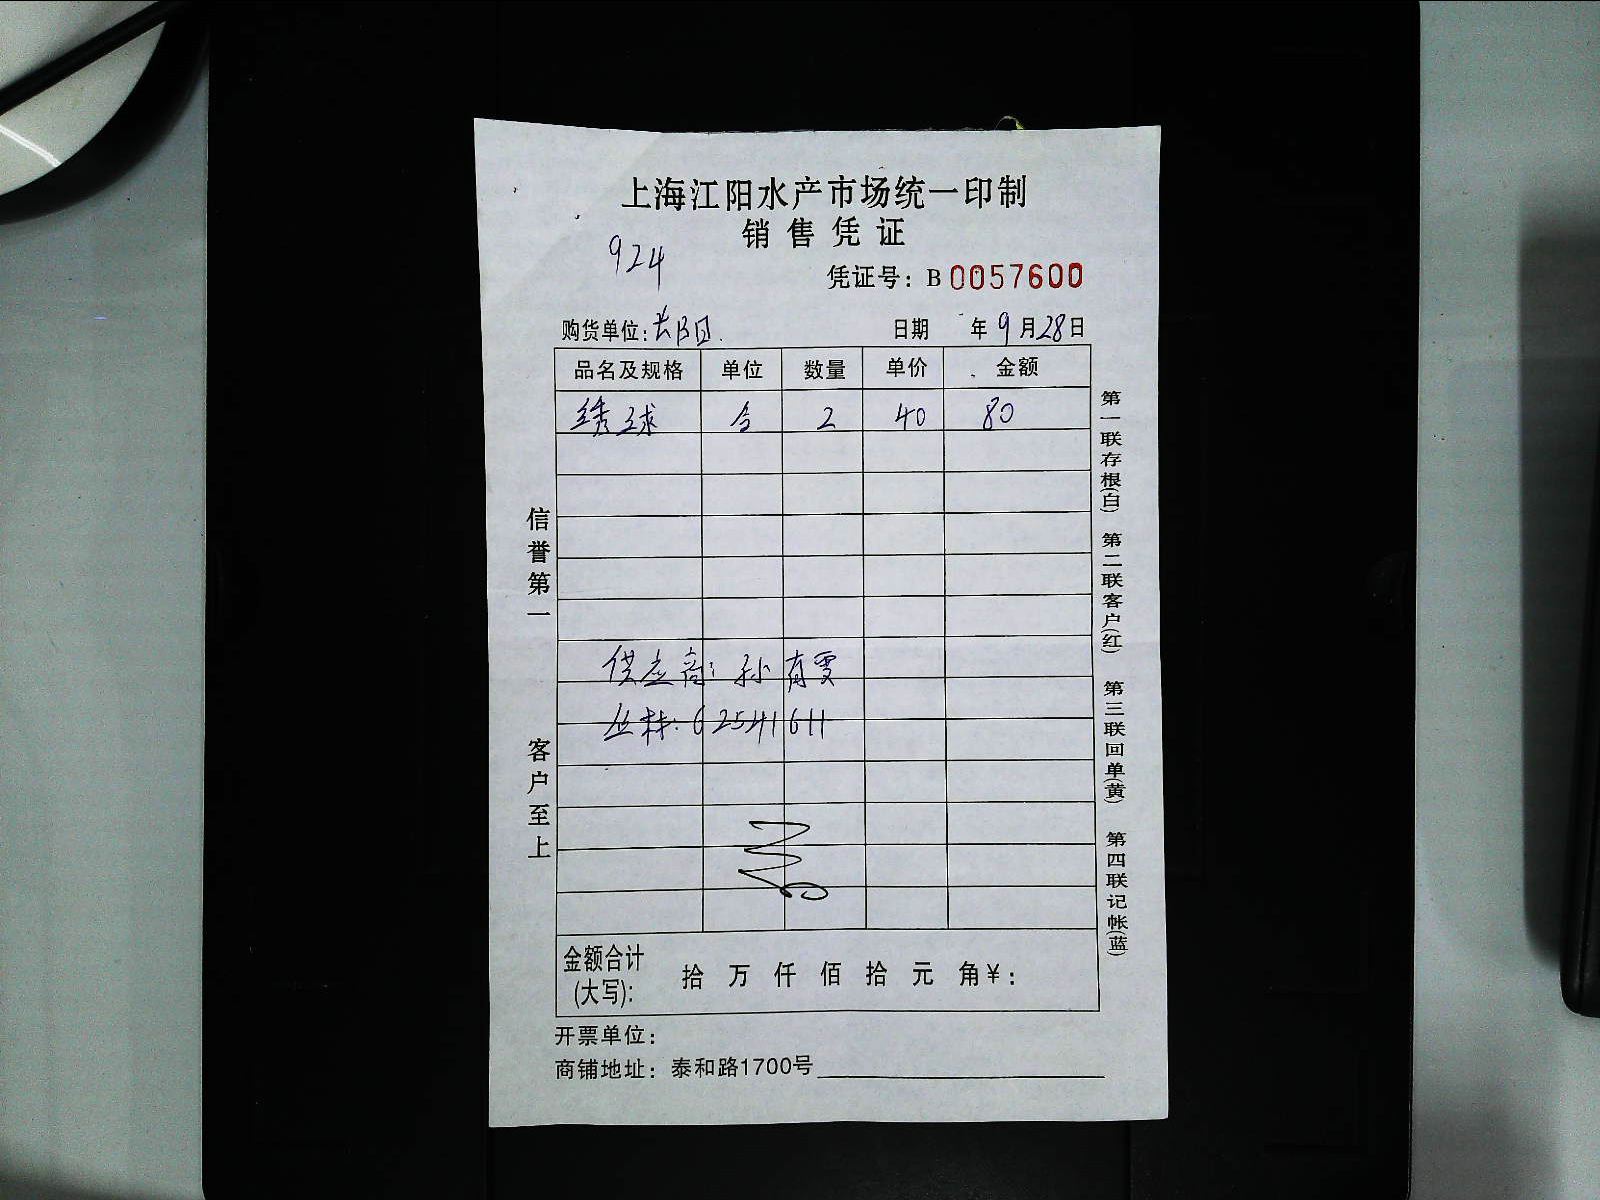 上海江阳水产市场统一印制
销售凭证
924
凭证号：B 0057600
购货单位: 日期 年 9 月 28 日
品名及规格 单位 数量 单价 金额
绣球 2 40 80
供应商: 孙
62541611
金额合计(大写): 拾 万 仟 佰 拾 元 角 ¥:
开票单位：
商铺地址：泰和路1700号
信誉第一 客户至上
第一联存根(白) 第二联客户(红) 第三联回单(黄) 第四联记帐(蓝)